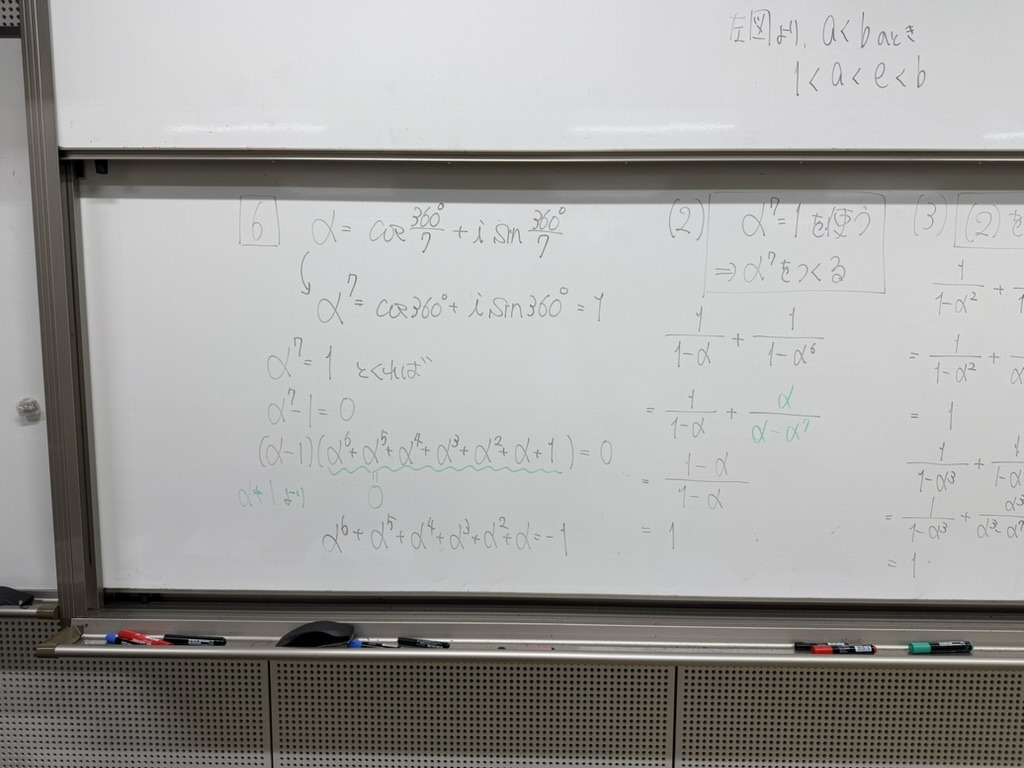 左図より, a<bのとき
1<a<e<b
6 α = cos 360°/7 + i sin 360°/7
α^7 = cos360° + i sin360° = 1
α^7 = 1 とくれば
α^7-1 = 0
(α-1)(α^6+α^5+α^4+α^3+α^2+α+1) = 0
α≠1より 0
α^6+α^5+α^4+α^3+α^2+α=-1
(2) α^7=1を使う
⇒α^7をつくる
1/(1-α) + 1/(1-α^6)
= 1/(1-α) + α/(α-α^7)
= (1-α)/(1-α)
= 1
(3) (2)を
1/(1-α^2) +
= 1/(1-α^2) +
= 1
1/(1-α^3) +
= 1/(1-α^3) + α^3/(α^3-α^7
= 1.